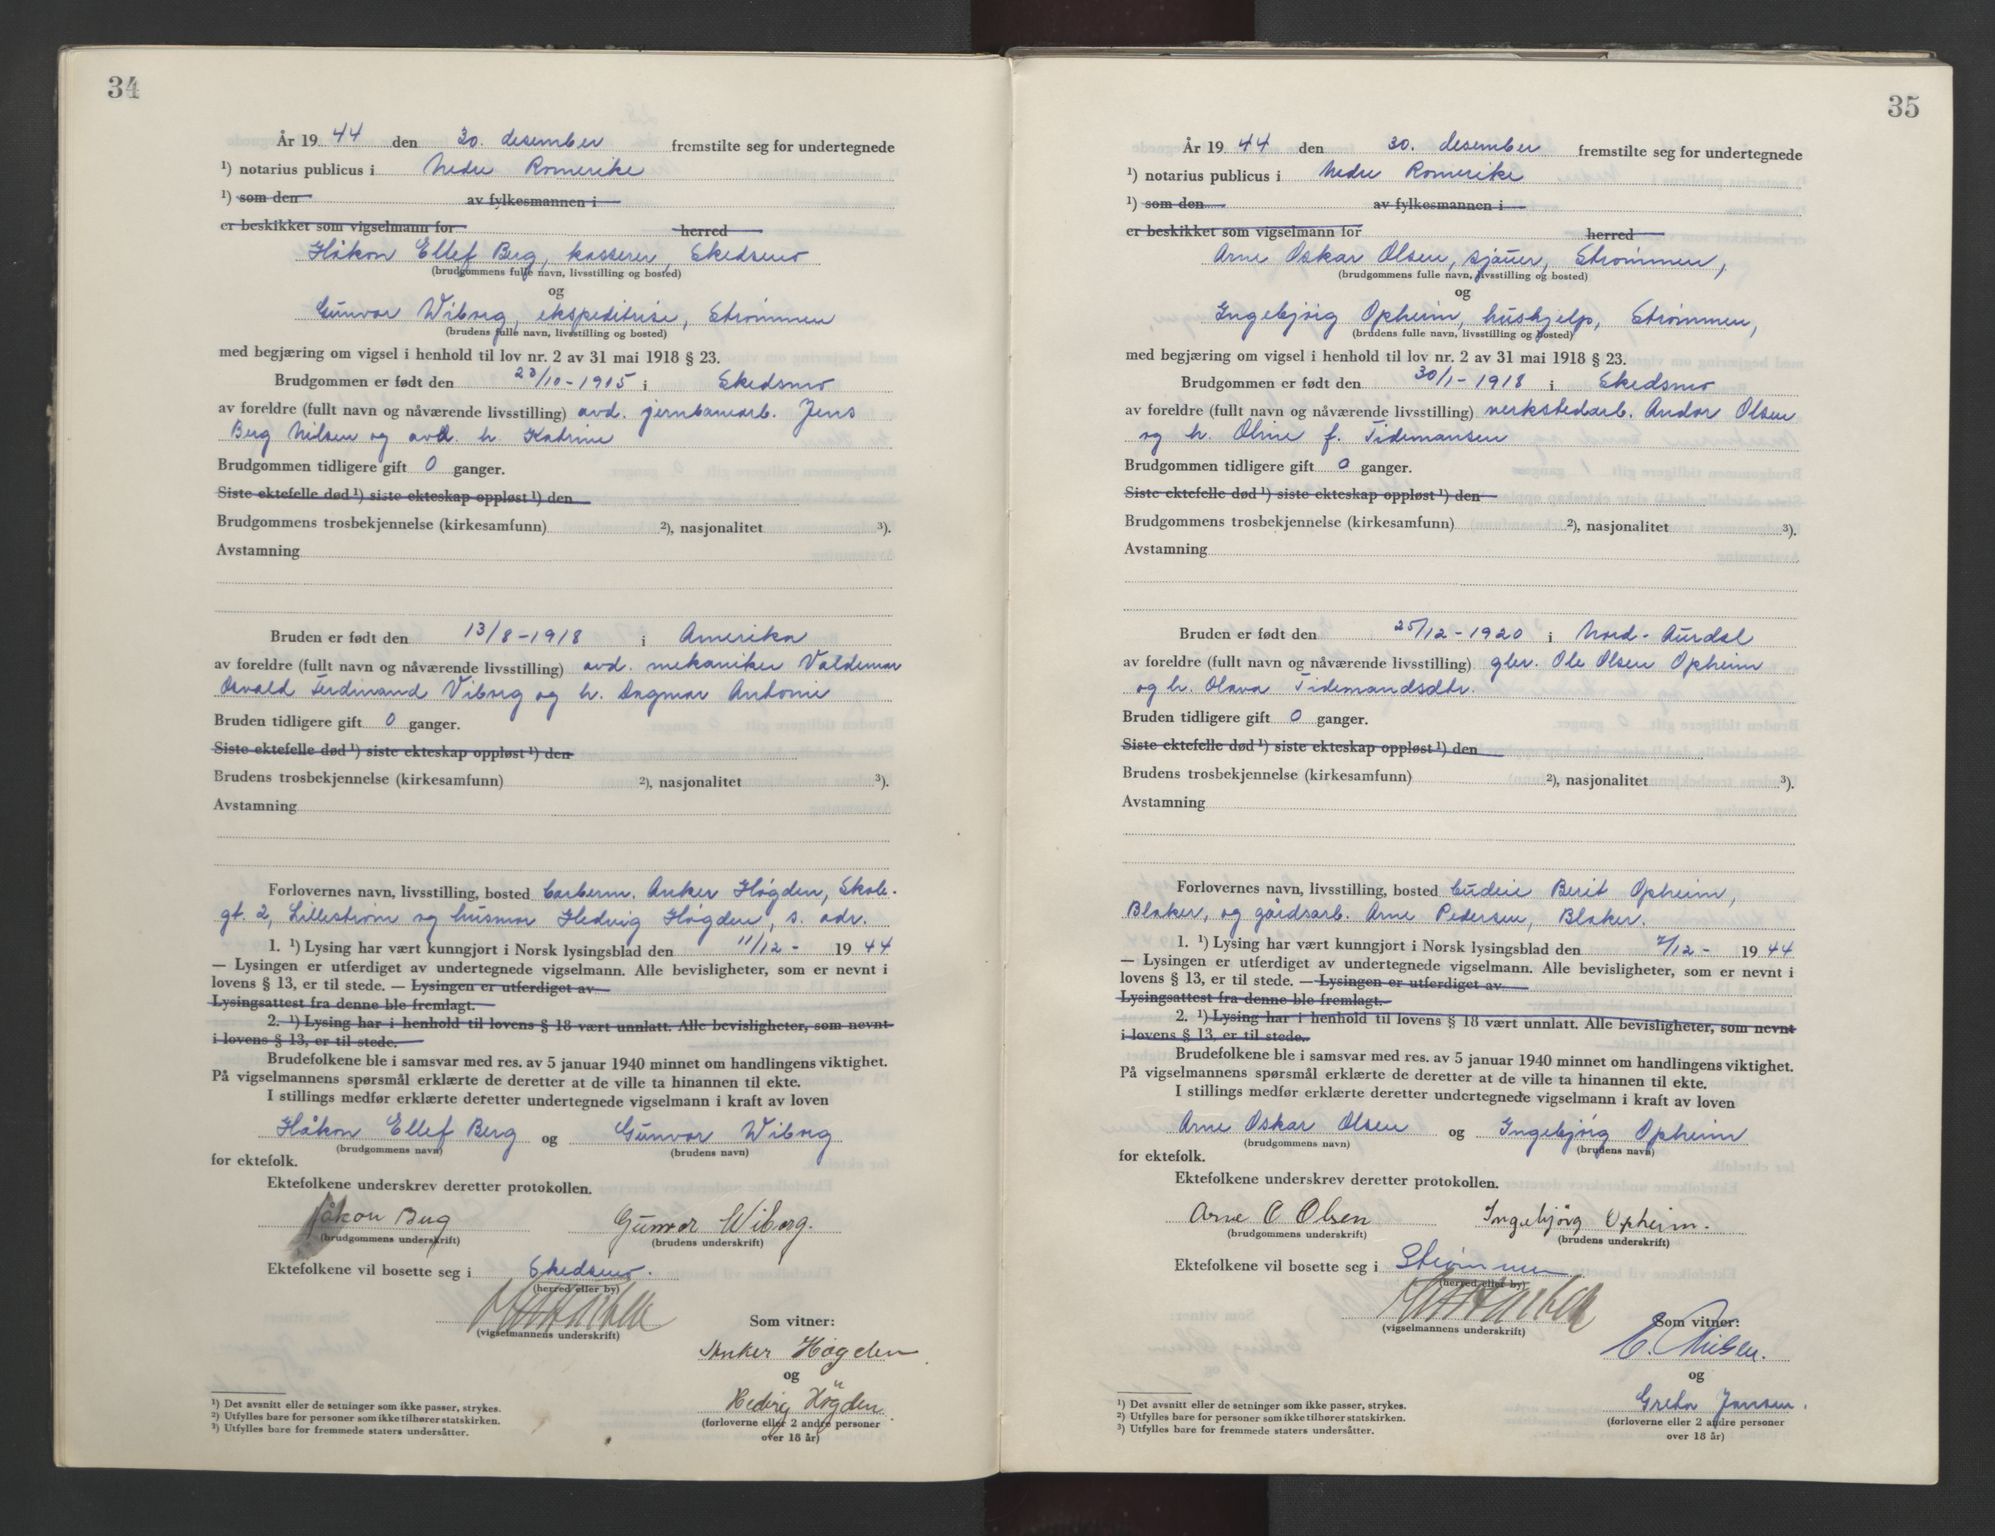 34
År 19 44 den 30. desember fremstilte seg for undertegnede
¹) notarius publicus i Nedre Romerike
¹) som den av fylkesmannen i
er beskikket som vigselmann for herred
Håkon Ellef Berg, kasserer, Skedsmo
(brudgommens fulle navn, livsstilling og bosted)
og
Gunvor Wiborg, ekspeditrise, Strømmen
(brudens fulle navn, livsstilling og bosted)
med begjæring om vigsel i henhold til lov nr. 2 av 31 mai 1918 § 23.
Brudgommen er født den 23/10-1915 i Skedsmo
av foreldre (fullt navn og nåværende livsstilling) avd. jernbanearb. Jens
Berg Nilsen og avd. h. Katrine
Brudgommen tidligere gift 0 ganger.
Siste ektefelle død ¹) siste ekteskap oppløst ¹) den
Brudgommens trosbekjennelse (kirkesamfunn) ²), nasjonalitet ³).
Avstamning
Bruden er født den 13/8-1918 i Amerika
av foreldre (fullt navn og nåværende livsstilling) avd. mekaniker Valdemar
Osvald Ferdinand Viborg og h. Dagmar Antonie
Bruden tidligere gift 0 ganger.
Siste ektefelle død ¹) siste ekteskap oppløst ¹) den
Brudens trosbekjennelse (kirkesamfunn) ²), nasjonalitet ³).
Avstamning
Forlovernes navn, livsstilling, bosted Anker Høgden, Skole-
gt. 2, Lillestrøm og husmor Hedvig Høgden, s. adr.
1. ¹) Lysing har vært kunngjort i Norsk lysingsblad den 11/12 - 19 44
— Lysingen er utferdiget av undertegnede vigselmann. Alle bevisligheter, som er nevnt i
lovens § 13, er til stede. — Lysingen er utferdiget av
Lysingsattest fra denne ble fremlagt.
2. ¹) Lysing har i henhold til lovens § 18 vært unnlatt. Alle bevisligheter, som nevnt
i lovens § 13, er til stede.
Brudefolkene ble i samsvar med res. av 5 januar 1940 minnet om handlingens viktighet.
På vigselmannens spørsmål erklærte de deretter at de ville ta hinannen til ekte.
I stillings medfør erklærte deretter undertegnede vigselmann i kraft av loven
Håkon Ellef Berg og Gunvor Wiborg
(brudgommens navn) (brudens navn)
for ektefolk.
Ektefolkene underskrev deretter protokollen.
Håkon Berg Gunvor Wiborg.
(brudgommens underskrift) (brudens underskrift)
Ektefolkene vil bosette seg i Skedsmo.
(herred eller by)
(vigselmannens underskrift)
Som vitner:
Anker Høgden
og
Hedvig Högden
(forloverne eller 2 andre personer
over 18 år)
¹) Det avsnitt eller de setninger som ikke passer, strykes.
²) Utfylles bare for personer som ikke tilhører statskirken.
³) Utfylles bare for fremmede staters undersåtter.
35
År 19 44 den 30. desember fremstilte seg for undertegnede
¹) notarius publicus i Nedre Romerike
¹) som den av fylkesmannen i
er beskikket som vigselmann for herred
Arne Oskar Olsen, sjåuer, Strømmen,
(brudgommens fulle navn, livsstilling og bosted)
og
Ingebjørg Opheim, hushjelp, Strømmen,
(brudens fulle navn, livsstilling og bosted)
med begjæring om vigsel i henhold til lov nr. 2 av 31 mai 1918 § 23.
Brudgommen er født den 30/1-1918 i Skedsmo
av foreldre (fullt navn og nåværende livsstilling) verkstedarb. Andor Olsen
og h. Oline f. Tidemansen
Brudgommen tidligere gift 0 ganger.
Siste ektefelle død ¹) siste ekteskap oppløst ¹) den
Brudgommens trosbekjennelse (kirkesamfunn) ²), nasjonalitet ³).
Avstamning
Bruden er født den 25/12-1920 i Nord-Aurdal
av foreldre (fullt navn og nåværende livsstilling) gbr. Ole Olsen Opheim
og h. Olava Tidemandsdtr.
Bruden tidligere gift 0 ganger.
Siste ektefelle død ¹) siste ekteskap oppløst ¹) den
Brudens trosbekjennelse (kirkesamfunn) ²), nasjonalitet ³).
Avstamning
Forlovernes navn, livsstilling, bosted Berit Opheim,
Blaker, og gårdsarb. Arne Pedersen, Blaker.
1. ¹) Lysing har vært kunngjort i Norsk lysingsblad den 7/12 - 19 44
— Lysingen er utferdiget av undertegnede vigselmann. Alle bevisligheter, som er nevnt i
lovens § 13, er til stede. — Lysingen er utferdiget av
Lysingsattest fra denne ble fremlagt.
2. ¹) Lysing har i henhold til lovens § 18 vært unnlatt. Alle bevisligheter, som nevnt
i lovens § 13, er til stede.
Brudefolkene ble i samsvar med res. av 5 januar 1940 minnet om handlingens viktighet.
På vigselmannens spørsmål erklærte de deretter at de ville ta hinannen til ekte.
I stillings medfør erklærte deretter undertegnede vigselmann i kraft av loven
Arne Oskar Olsen og Ingebjørg Opheim
(brudgommens navn) (brudens navn)
for ektefolk.
Ektefolkene underskrev deretter protokollen.
Arne O Olsen Ingebjörg Opheim.
(brudgommens underskrift) (brudens underskrift)
Ektefolkene vil bosette seg i Strømmen
(herred eller by)
(vigselmannens underskrift)
Som vitner:
E. Nilsen.
og
Grethe Jansen.
(forloverne eller 2 andre personer
over 18 år)
¹) Det avsnitt eller de setninger som ikke passer, strykes.
²) Utfylles bare for personer som ikke tilhører statskirken.
³) Utfylles bare for fremmede staters undersåtter.